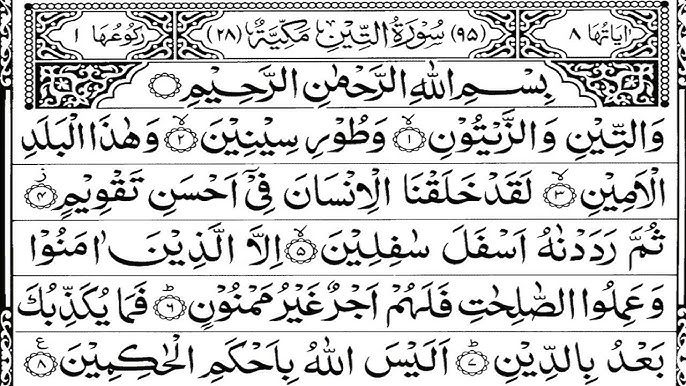 اٰيَاتُهَا ٨ (٩٥) سُوْرَةُ التِّيْنِ مَكِّيَّةٌ (٢٨) رُكُوْعُهَا ١
بِسْمِ اللّٰهِ الرَّحْمٰنِ الرَّحِيْمِ ۝
وَالتِّيْنِ وَالزَّيْتُوْنِ ۙ‏﴿۱﴾ وَطُوْرِ سِيْنِيْنَ ۙ‏﴿۲﴾ وَهٰذَا الْبَلَدِ
الْاَمِيْنِ ۙ‏﴿۳﴾ لَقَدْ خَلَقْنَا الْاِنْسَانَ فِيْۤ اَحْسَنِ تَقْوِيْمٍ ۫‏﴿۴﴾
ثُمَّ رَدَدْنٰهُ اَسْفَلَ سٰفِلِيْنَ ۙ‏﴿۵﴾ اِلَّا الَّذِيْنَ اٰمَنُوْا
وَعَمِلُوا الصّٰلِحٰتِ فَلَهُمْ اَجْرٌ غَيْرُ مَمْنُوْنٍ ؕ‏﴿۶﴾ فَمَا يُكَذِّبُكَ
بَعْدُ بِالدِّيْنِ ؕ‏﴿۷﴾ اَلَيْسَ اللّٰهُ بِاَحْكَمِ الْحٰكِمِيْنَ ‏﴿۸﴾ ع